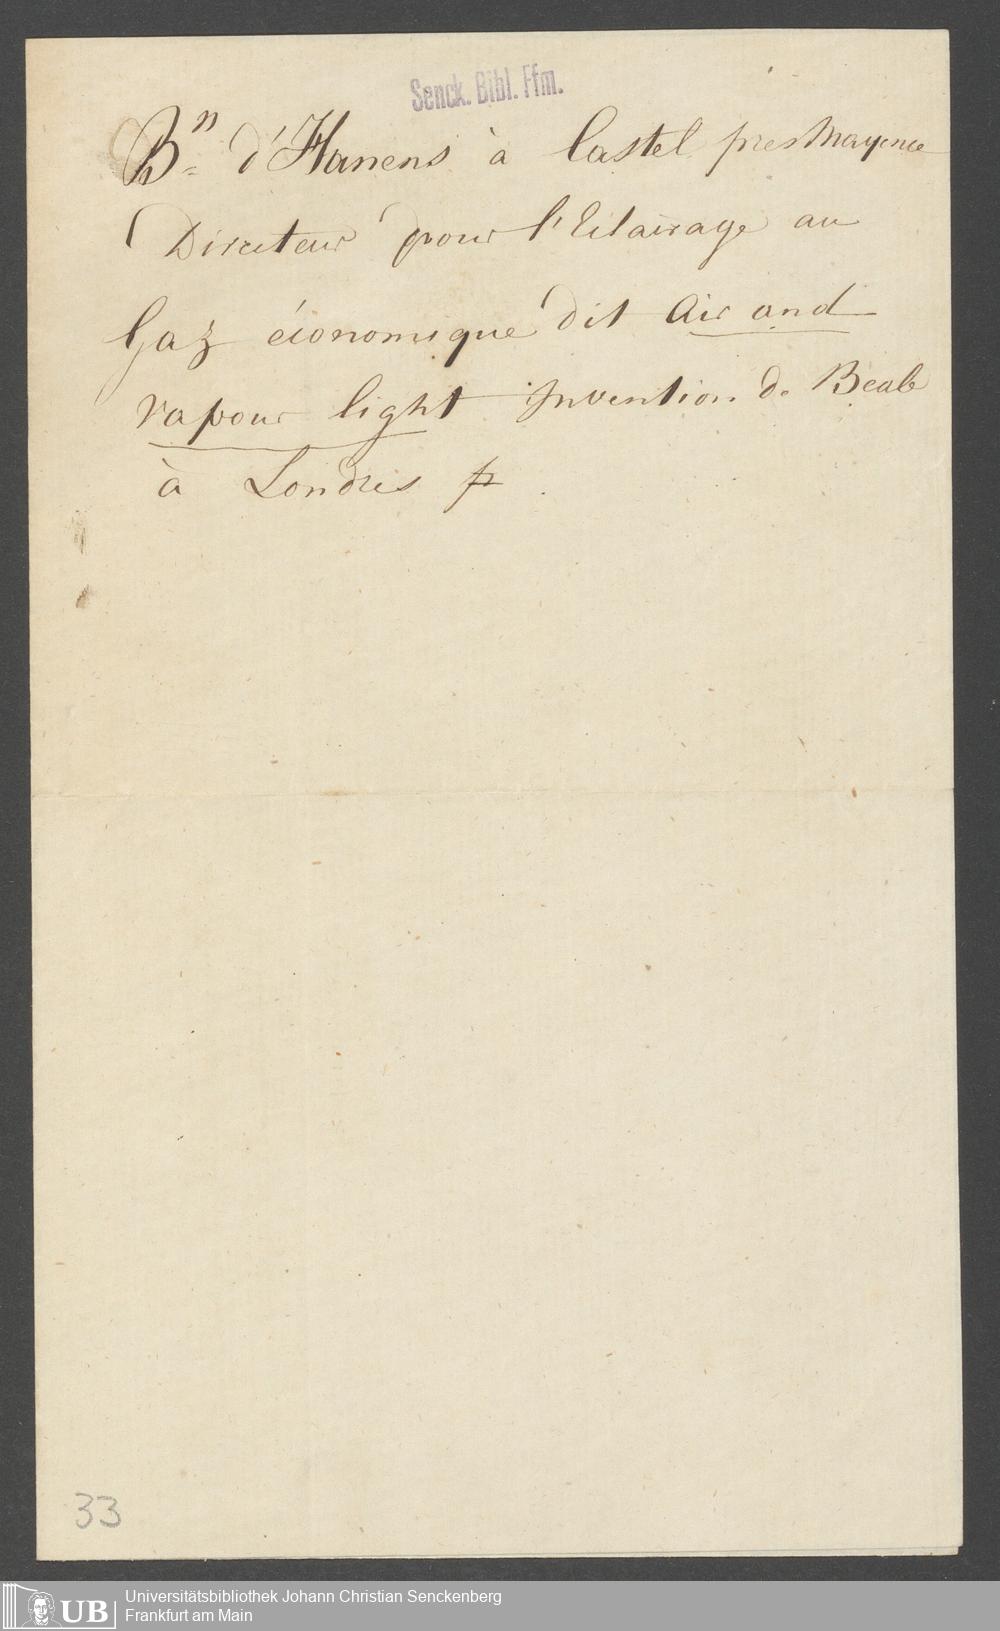 Senck. Bibl. Ffm.
Bn d'Hanens à Castel pres Mayence
Directeur pour l'Eclairage au
Gaz économique dit Air and
vapour light Invention de Beale
à Londres
33
UB
Universitätsbibliothek Johann Christian Senckenberg
Frankfurt am Main